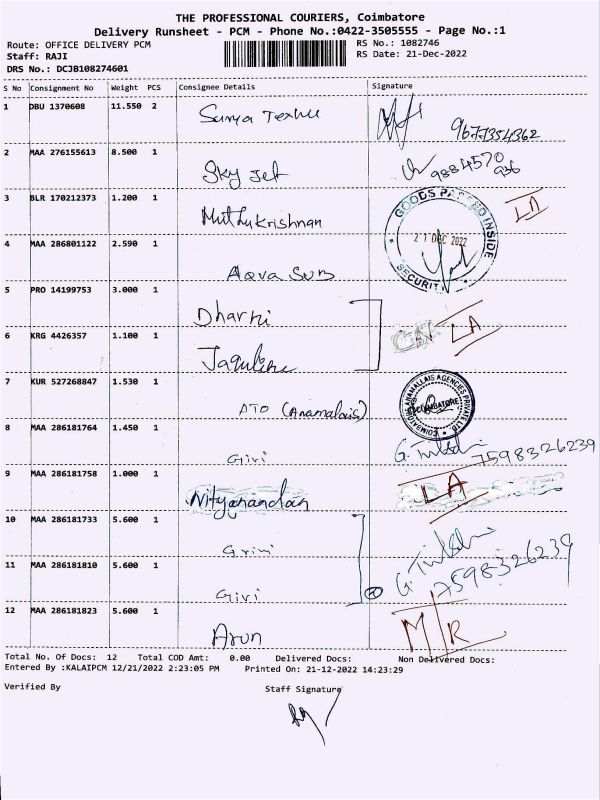 THE PROFESSIONAL COURIERS, Coimbatore
Delivery Runsheet - PCM - Phone No.:0422-3505555 - Page No.:1
Route: OFFICE DELIVERY PCM RS No.: 1082746
Staff: RAJI RS Date: 21-Dec-2022
DRS No.: DCJB108274601
S No Consignment No Weight PCS Consignee Details Signature
1 DBU 1370608 11.550 2 Surya 9677354362
2 MAA 276155613 8.500 1 Sky Jet 9884570 936
3 BLR 170212373 1.200 1 Muthukrishnan LA
GOODS PASSED INSIDE
21 DEC 2022
SECURITY
4 MAA 286801122 2.590 1 Aqva Sub
5 PRO 14199753 3.000 1 Dharni
CN LA
6 KRG 4426357 1.100 1 Jaquline
7 KUR 527268847 1.530 1 ATO (Anamalais)
COIMBATORE ANAMALLAIS AGENCIES PRIVATE LTD
COIMBATORE
8 MAA 286181764 1.450 1 Giri 7598326239
9 MAA 286181758 1.000 1 Nityanandan LA
10 MAA 286181733 5.600 1 Grini
11 MAA 286181810 5.600 1 Giri 7598326239
12 MAA 286181823 5.600 1 Arun M/R
Total No. Of Docs: 12 Total COD Amt: 0.00 Delivered Docs: Non Delivered Docs:
Entered By :KALAIPCM 12/21/2022 2:23:05 PM Printed On: 21-12-2022 14:23:29
Verified By Staff Signature